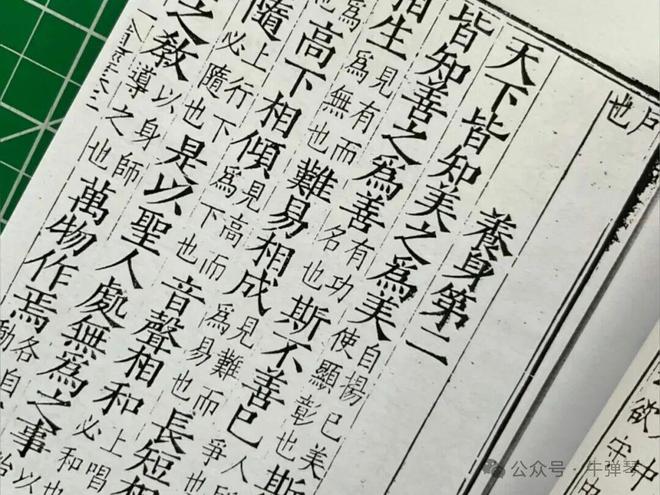 戶
也
養身第二
天下皆知美之為美自揚己美使顯彰也斯
皆知善之為善有功名也斯不善已人所
相生見有而為無也難易相成見難而為易也長短相
也高下相傾見高而為下也音聲相和上唱必和也
隨上行下必隨也是以聖人處無為之事以
之教以身師導之也萬物作焉各自動
中
欲
公众号 · 牛弹琴